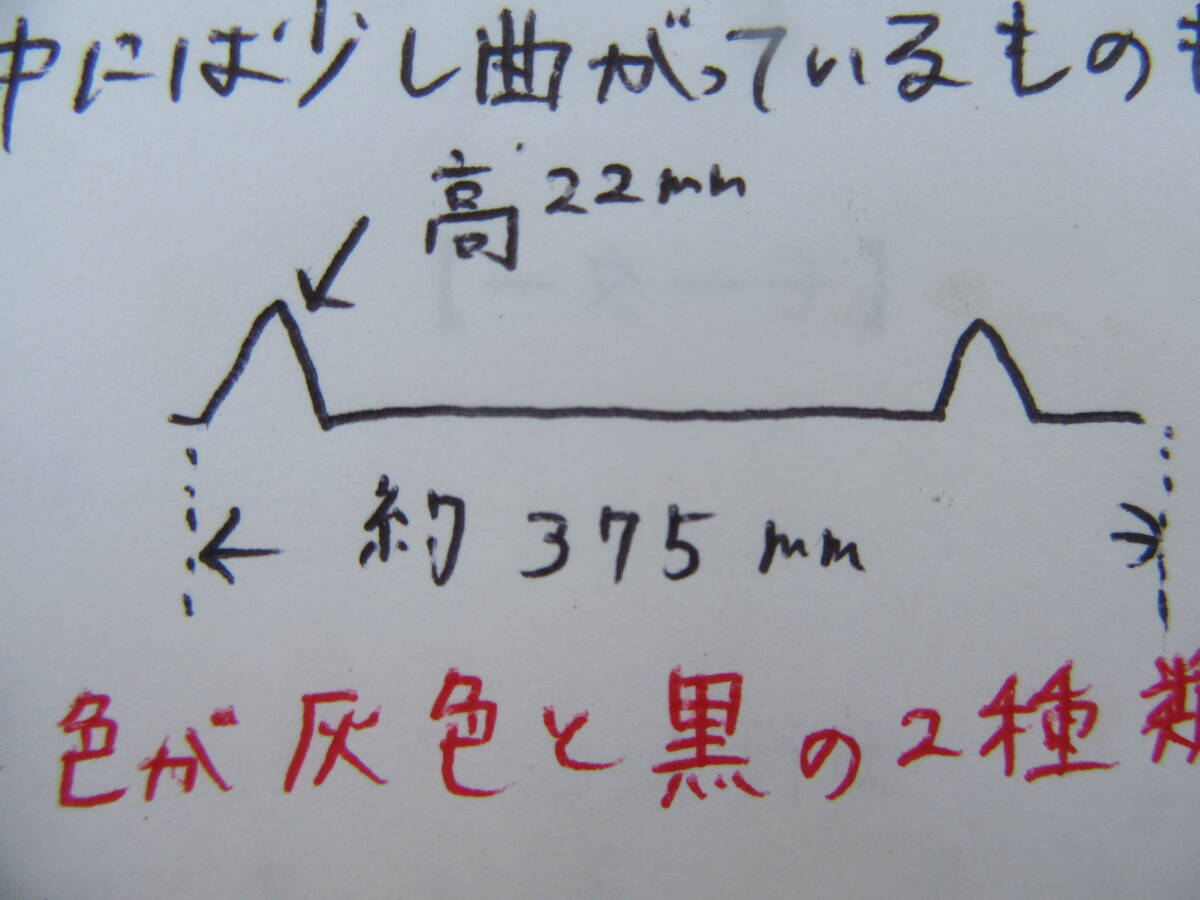 中には少し曲がっているものも
高22mm
約375mm
色が灰色と黒の2種類